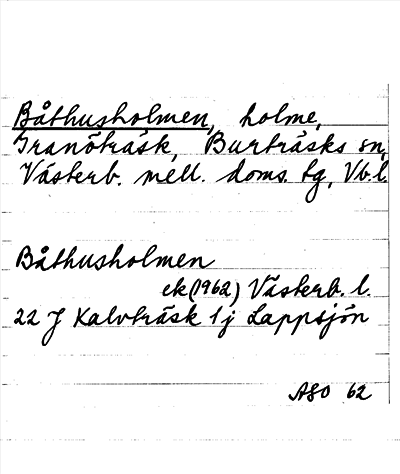 Båthusholmen, holme,
Tranöträsk, Burträsks sn,
Västerb. mell. doms. tg, Vb.l.
Båthusholmen
ek (1962) Västerb. l.
22 J Kalvträsk 1j Lappsjön
ASO 62